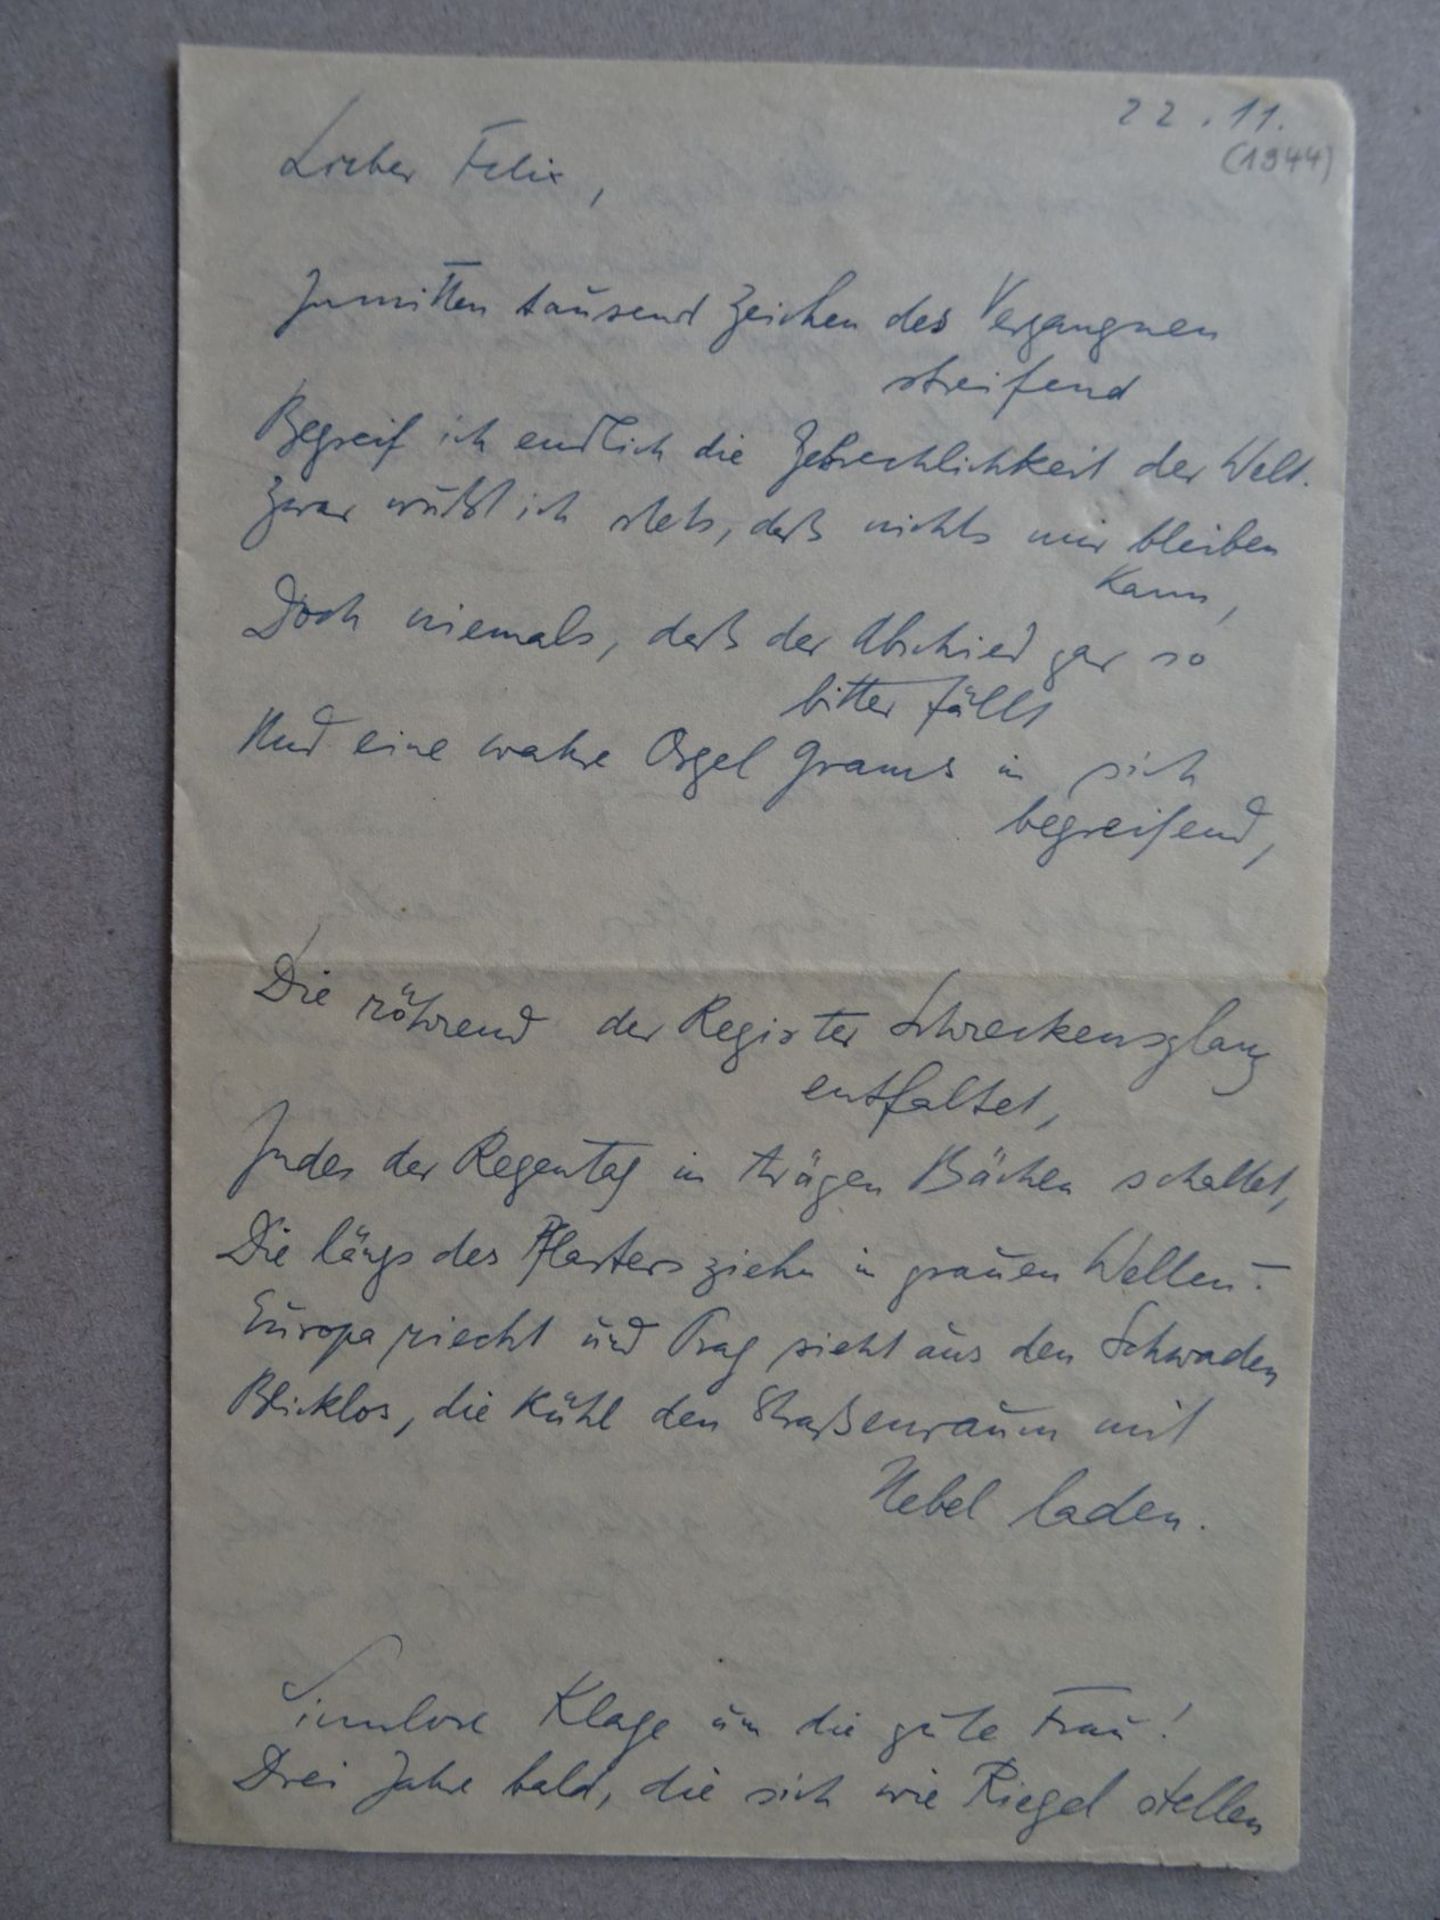 22.11.
(1944)
Lieber Felix,
Inmitten tausend Zeichen des Vergangnen
streifend
Begreif ich endlich die Zebrechlichkeit der Welt.
Zwar wußt ich stets, daß nichts mir bleiben
kann,
Doch niemals, daß der Abschied gar so
bitter fällt
Und eine wahre Orgel Grams in sich
begreifend,
Die röhrend der Register Schreckensglanz
entfaltet,
Indes der Regentag in trägen Bächen schaltet,
Die längs des Pflasters ziehn in grauen Wellen –
Europa riecht und Prag sieht aus den Schwaden
Blicklos, die kühl den Straßenraum mit
Nebel laden.
Sinnlose Klage um die gute Frau!
Drei Jahre bald, die sich wie Riegel stellen